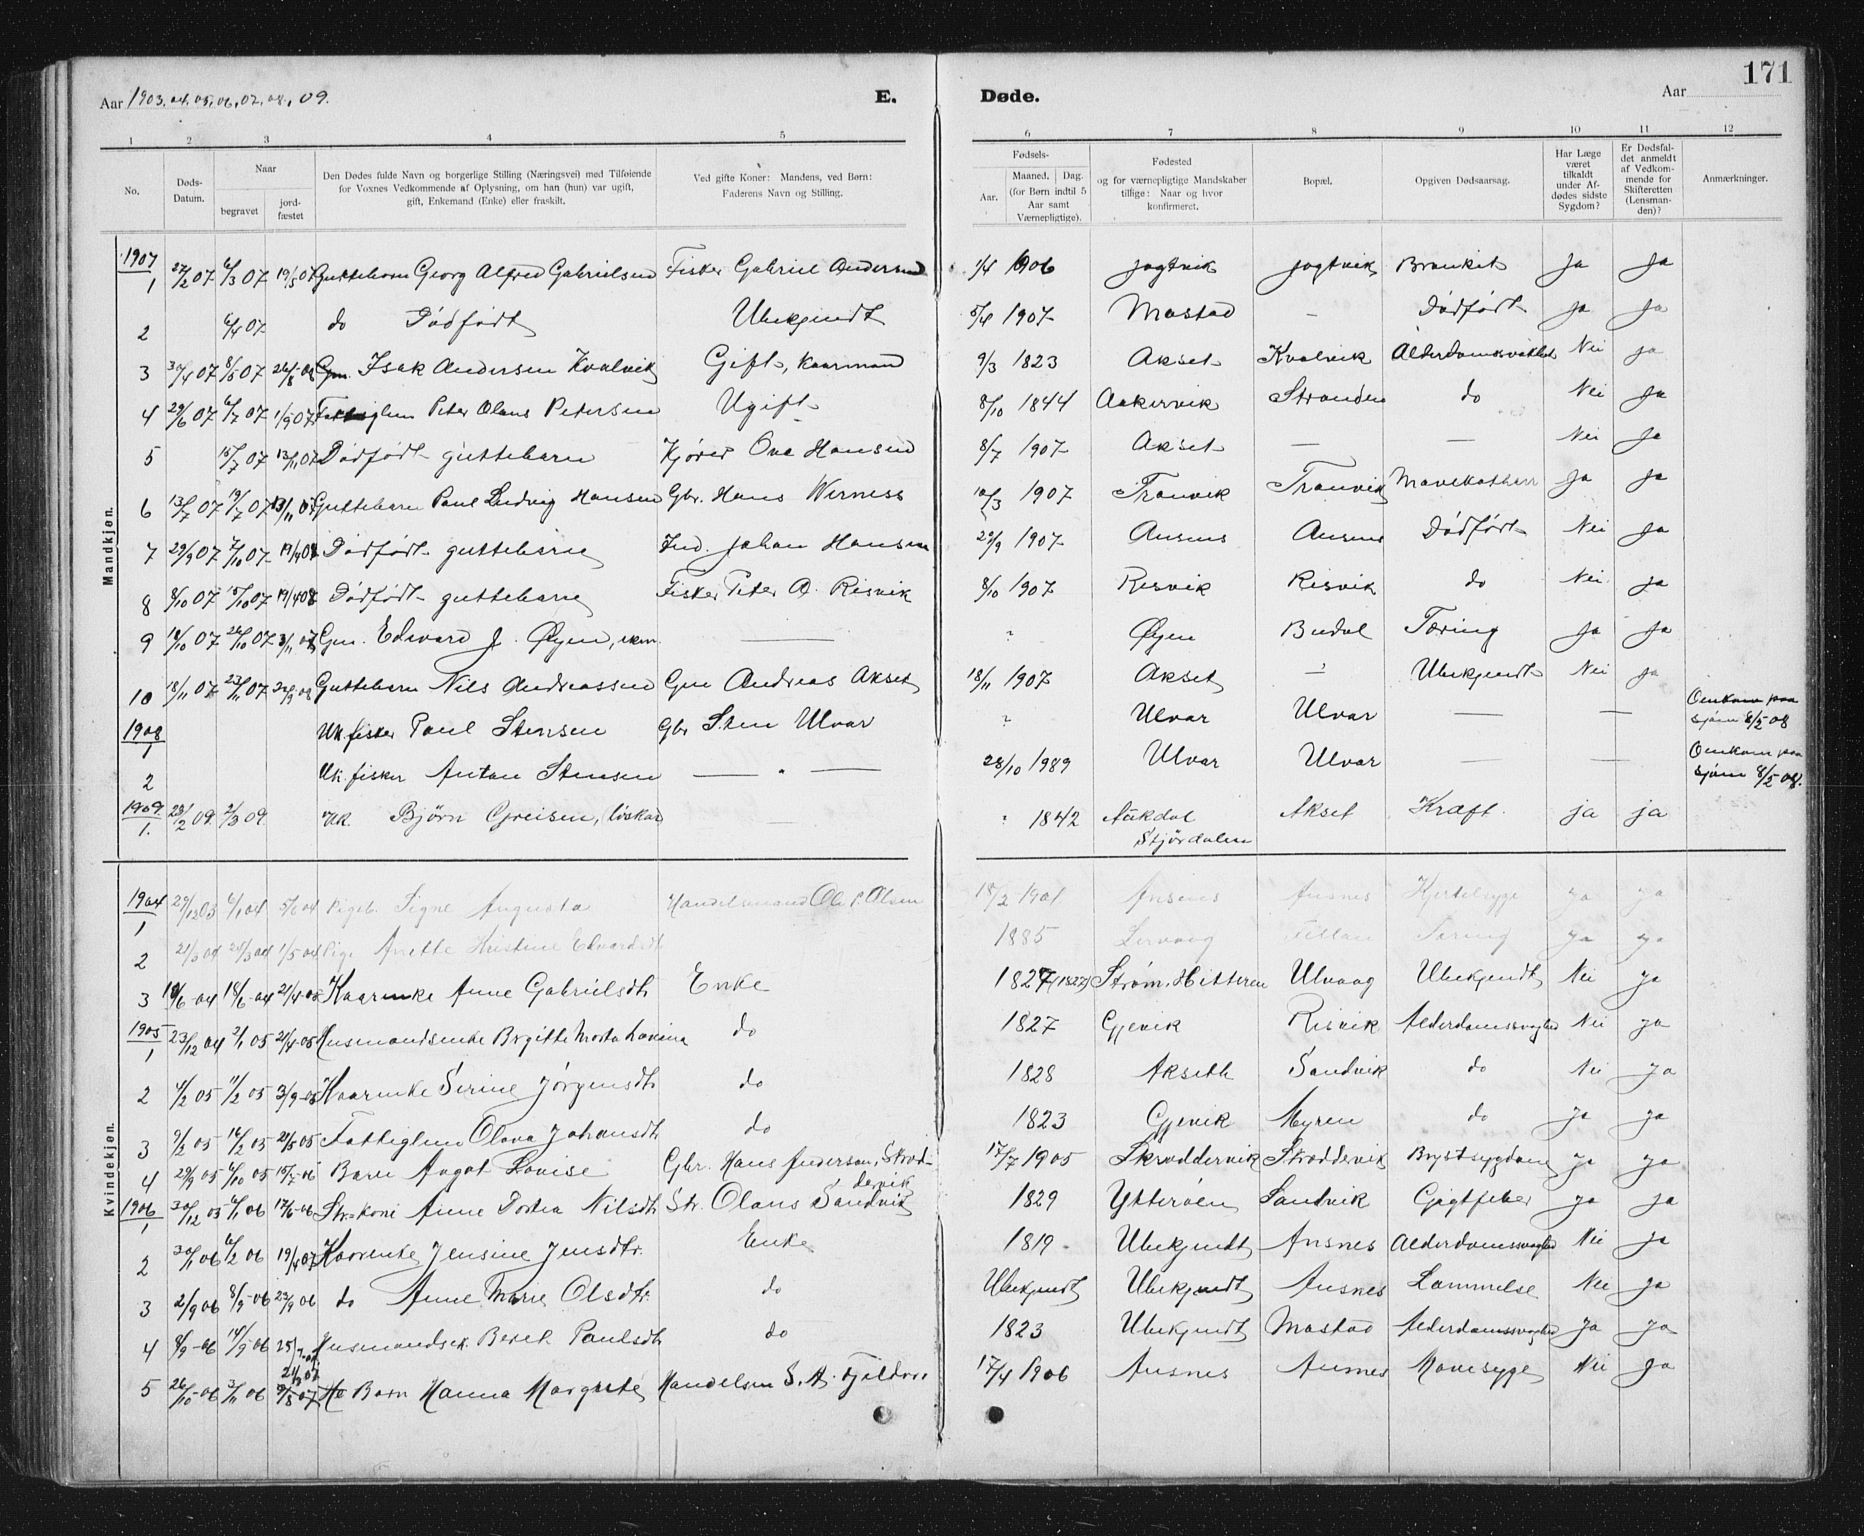 Aar 1903. 04. 05. 06, 07. 08., 09. E. Døde. Aar 171
1 2 3 4 5 6 7 8 9 10 11 12
No. Døds-Datum. Naar begravet jord-fæstet Den Dødes fulde Navn og borgerlige Stilling (Næringsvei) med Tilføiende for Voxnes Vedkommende af Oplysning, om han (hun) var ugift, gift, Enkemand (Enke) eller fraskilt. Ved gifte Koner: Mandens, ved Børn: Faderens Navn og Stilling. Fødsels- Aar. Maaned. Dag. (for Børn indtil 5 Aar samt Værnepligtige). Fødested og for værnepligtige Mandskaber tillige: Naar og hvor konfirmeret. Bopæl. Opgiven Dødsaarsag. Har Læge været tilkaldt under Afdødes sidste Sygdom? Er Dødsfaldet anmeldt af Vedkommende for Skifteretten (Lensmanden)? Anmærkninger.
Mandkjøn.
1907
1 27/2 07 6/3 07 19/5 07 Guttebarn Georg Alfred Gabrielsen Fisker Gabriel Andersen 1/4 1906 Jøgtvik Jøgtvik Bronkit Ja Ja
2 6/4 07 do Dødfødt Ubekjendt 5/4 1907 Mastad – Dødfødt ja ja
3 30/4 07 8/5 07 26/8 08 Gm. Isak Andersen Kvalvik Gift, Kaarmand 9/3 1823 Akset Kvalvik Alderdomssvakhet Nei ja
4 29/6 07 6/7 07 1/9 07 Peter Olaus Petersen Ugift 8/10 1844 Aakervik Stranden do Nei Ja
5 15/7 07 13/11 07 Dødfødt guttebarn Kjører Ove Hansen 8/7 1907 Akset — — Nei Ja
6 13/7 07 19/7 07 13/11 07 Guttebarn Paul Ludvig Hansen Gbr. Hans Werness 10/3 1907 Tranvik Tranvik Mavekatharr Ja Ja
7 29/9 07 7/10 07 19/4 08 Dødfødt guttebarn Ind. Johan Hansen 29/9 1907 Ansnes Ansnes Dødfødt Nei Ja
8 8/10 07 15/10 07 19/4 08 Dødfødt guttebarn Fisker Peter A. Risvik 8/10 1907 Risvik Risvik do Nei Ja
9 18/10 07 26/10 07 3/11 07 Gm. Edward J. Øyen, — Øyen Budal Tæring Ja Ja
10 18/11 07 23/11 07 22/9 08 Guttebarn Nils Andreassen Gm Andreas Akset 18/11 1907 Akset Ubekjendt Nei ja
1908
1 Uk. fisker Paul Stensen Gbr Sten Ulvar Ulvar Ulvar — — Omkom paa sjøen 8/5 08
2 Uk. fisker Antan Stensen — " — 28/10 1989 Ulvar Ulvar — — Omkom paa sjøen 8/5 08.
1909
1. 23/2 09. 2/3 09 Uk. Bjørn Greisen, løskar — 1842 Stjørdalen Akset Kræft. ja ja
Kvindekjøn.
1904
1 29/12 03 6/1 04 Pigeb. Signe Augusta Handelsmand Ole P. Olsen 18/2 1901 Ansnes Ansnes Kjertelsyge ja ja
2 21/3 04 28/3 04 1/5 04 Pige Anette Kristine Edvardsdt 1885 Lervaag Fillan Tæring ja ja
3 10/6-04 18/6-04 21/4-05 Kaarenke Anne Gabrielsdt Enke 1827 (1827) Strøm, Hitteren Ulvaag Ubekjendt Nei ja
1905
1 23/12 04 2/1 05 21/4-05 Husmandsenke Birgitte Marta Lavina do 1827 Gjevik Risvik Alderdomssvaghed Nei ja
2 4/2 05 11/2 05 3/9-05 Kaarenke Serine Jørgensdt do 1828 Akseth Sandvik do Nei ja
3 9/2 05 16/2 05 21/5 05 Fattiglem Olava Johansdt do 1823 Gjevik Myren do Ja Ja
4 29/9 05 6/10 05 15/7-06 Barn Aagot Lovise Gbr. Hans Anderson, Skreddervik 17/7 1905 Skreddervik Skreddervik Brystsygdom ja ja
1906
1 30/12 05 6/1 06 17/6-06 Str. kone Anne Dortea Nilsdt Str. Olaus Sandvik 1829 Ytterøen Sandvik Gigtfeber ja ja
2 30/1 06 6/2 06 19/4 07 Kaarenke Jensine Jensdtr. Enke 1819 Ubekjendt Ansnes Alderdomssvaghed Nei ja
3 2/9 06 8/9-06 23/9 06 do Anne Marie Olsdtr. do Ubekjendt Ubekjendt Ansnes Lammelse Nei Ja
4 8/9-06 14/9 06 Husmandsek. Beret Paulsdt do 1823 Ubekjendt Mastad Alderdomssvaghed Ja Ja
5 26/10-06 3/11 06 Barn Hanna Margrete Handelsm S. A. Fjeldvær 17/4 1906 Ansnes Ansnes Mavesyge Nei Ja